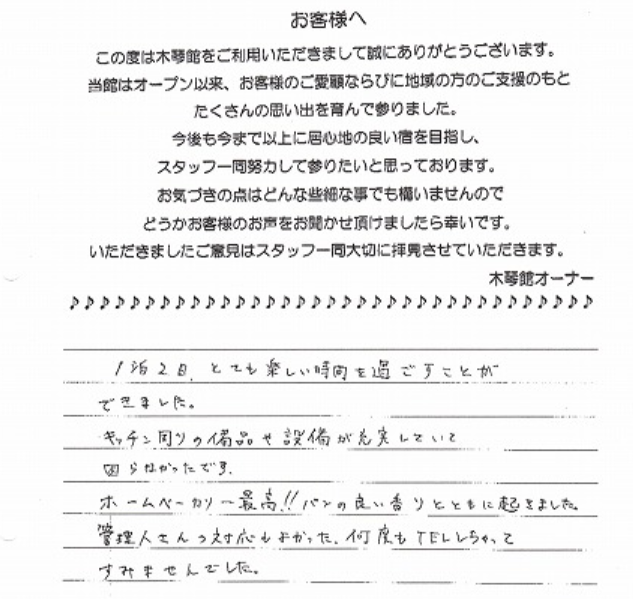 お客様へ
この度は木琴館をご利用いただきまして誠にありがとうございます。
当館はオープン以来、お客様のご愛顧ならびに地域の方のご支援のもと
たくさんの思い出を育んで参りました。
今後も今まで以上に居心地の良い宿を目指し、
スタッフ一同努力して参りたいと思っております。
お気づきの点はどんな些細な事でも構いませんので
どうかお客様のお声をお聞かせ頂けましたら幸いです。
いただきましたご意見はスタッフ一同大切に拝見させていただきます。
木琴館オーナー
♪♪♪♪♪♪♪♪♪♪♪♪♪♪♪♪♪♪♪♪♪♪♪♪♪♪♪♪♪♪♪♪♪♪♪
1泊2日、とても楽しい時間を過ごすことが
できました。
キッチン周りの備品や設備が充実していて
困らなかったです。
ホームベーカリー最高!!パンの良い香りとともに起きました。
管理人さんの対応もよかった、何度もTELしちゃって
すみませんでした。